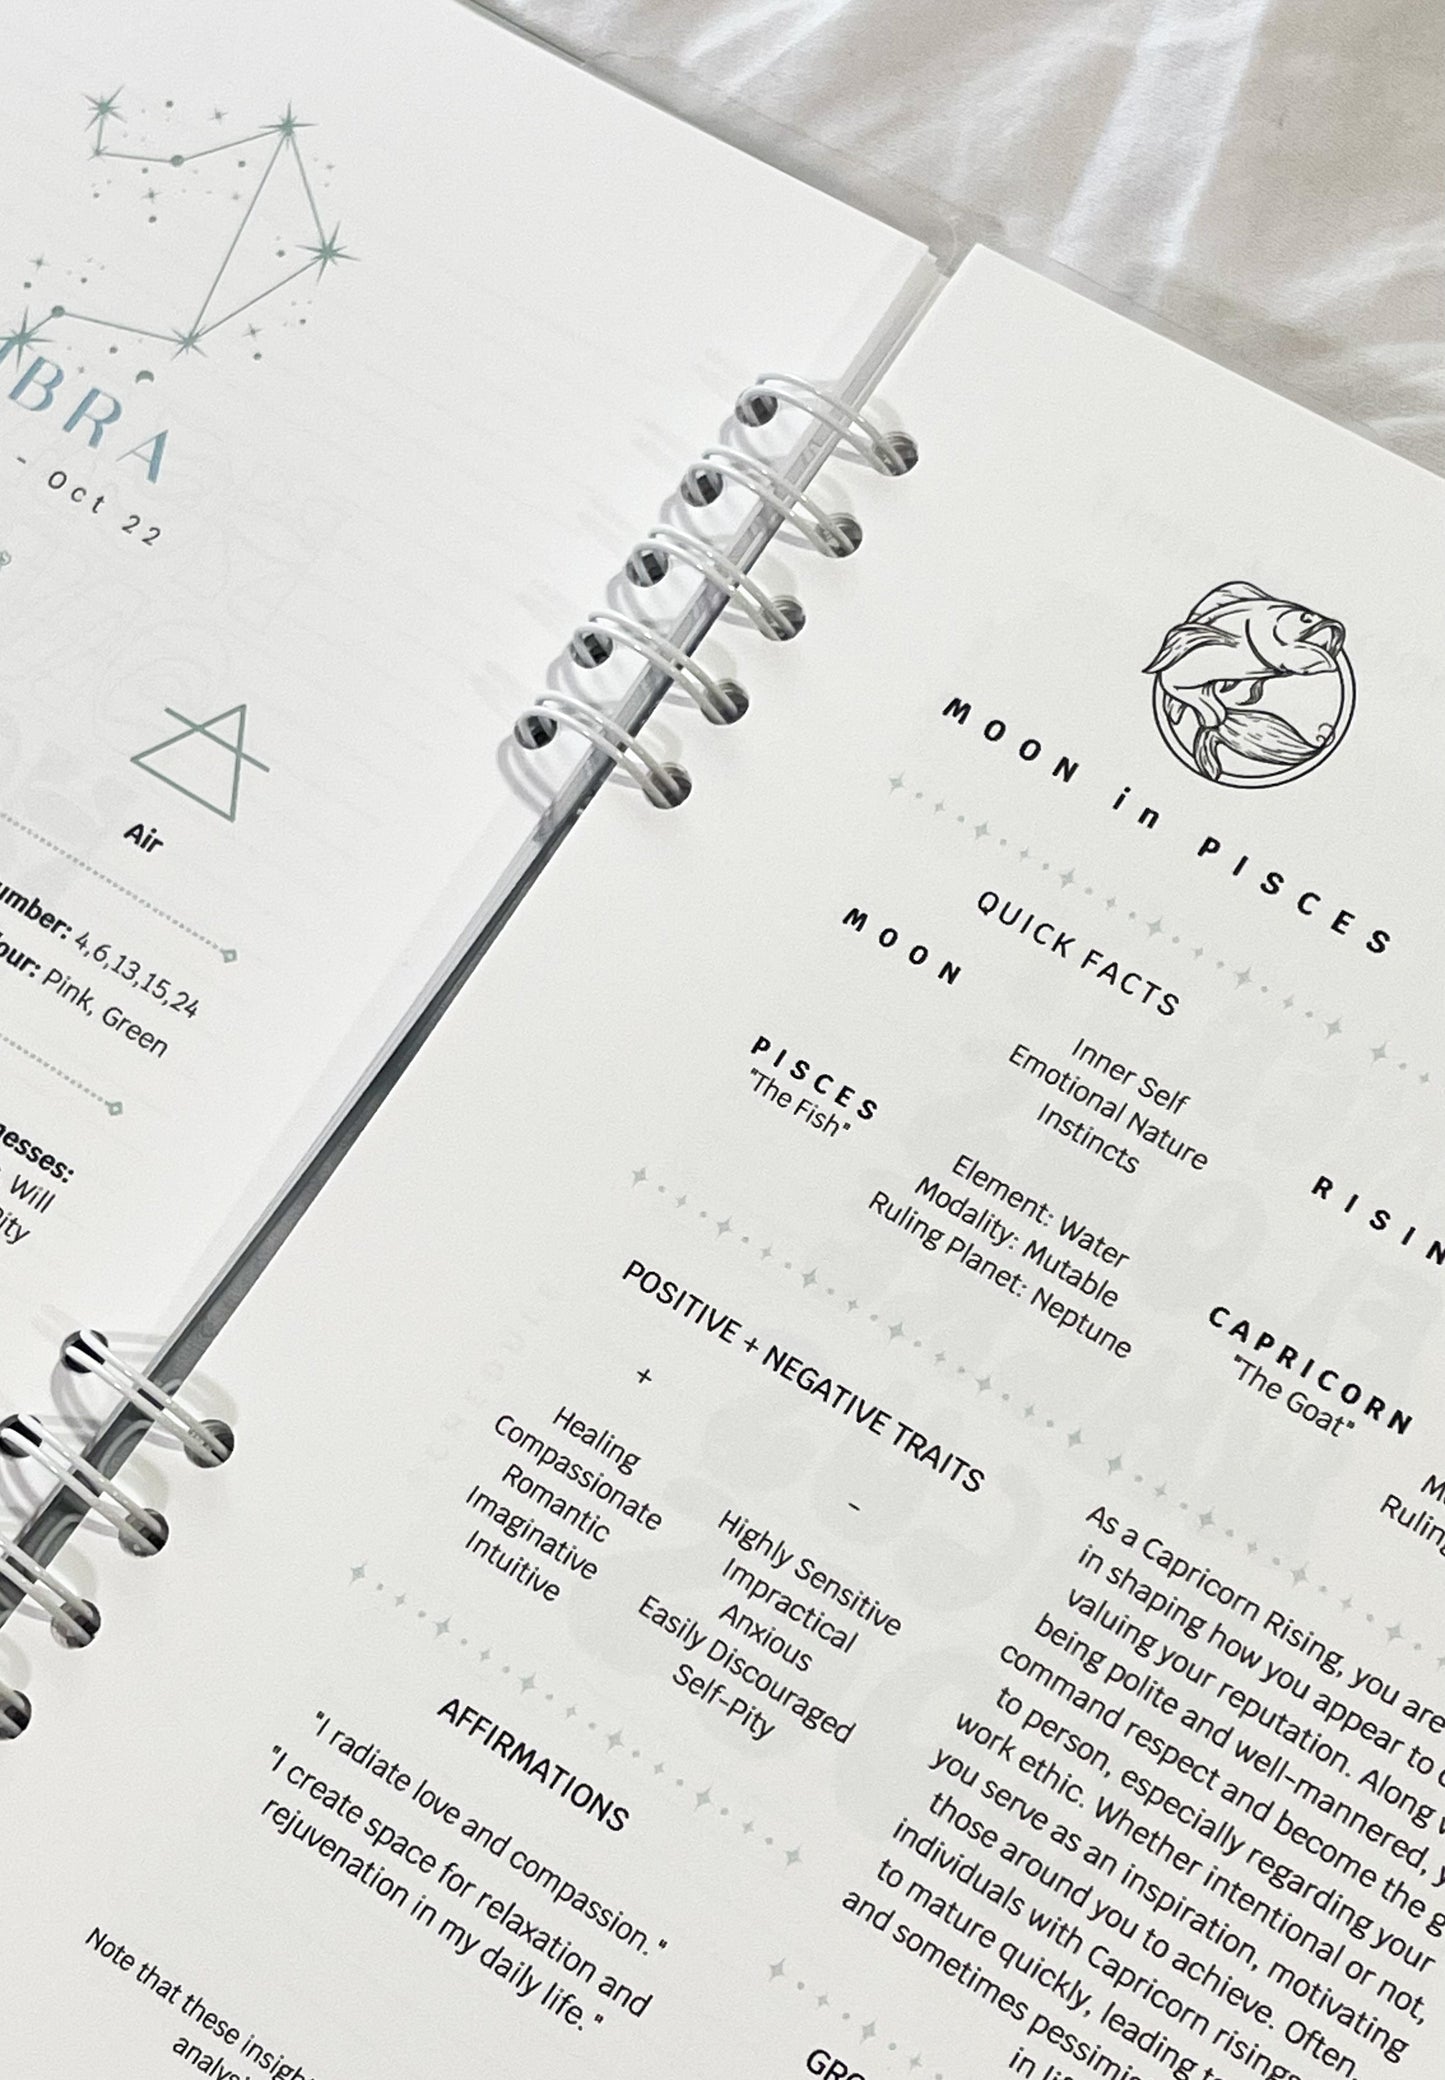 BRA
- Oct 22
Air
4,6,13,15,24
Pink, Green
Will
MOON in PISCES
QUICK FACTS
MOON
Inner Self
Emotional Nature
Instincts
PISCES
"The Fish"
Element: Water
Modality: Mutable
Ruling Planet: Neptune
POSITIVE + NEGATIVE TRAITS
+
Healing
Compassionate
Romantic
Imaginative
Intuitive
-
Highly Sensitive
Impractical
Anxious
Easily Discouraged
Self-Pity
AFFIRMATIONS
"I radiate love and compassion."
"I create space for relaxation and
rejuvenation in my daily life."
Note that these
CAPRICORN
"The Goat"
As a Capricorn Rising, you are
in shaping how you appear to
valuing your reputation. Along
being polite and well-mannered,
command respect and become the
to person, especially regarding your
work ethic. Whether intentional or not,
you serve as an inspiration, motivating
those around you to achieve. Often,
individuals with Capricorn risings
to mature quickly, leading
and sometimes
in